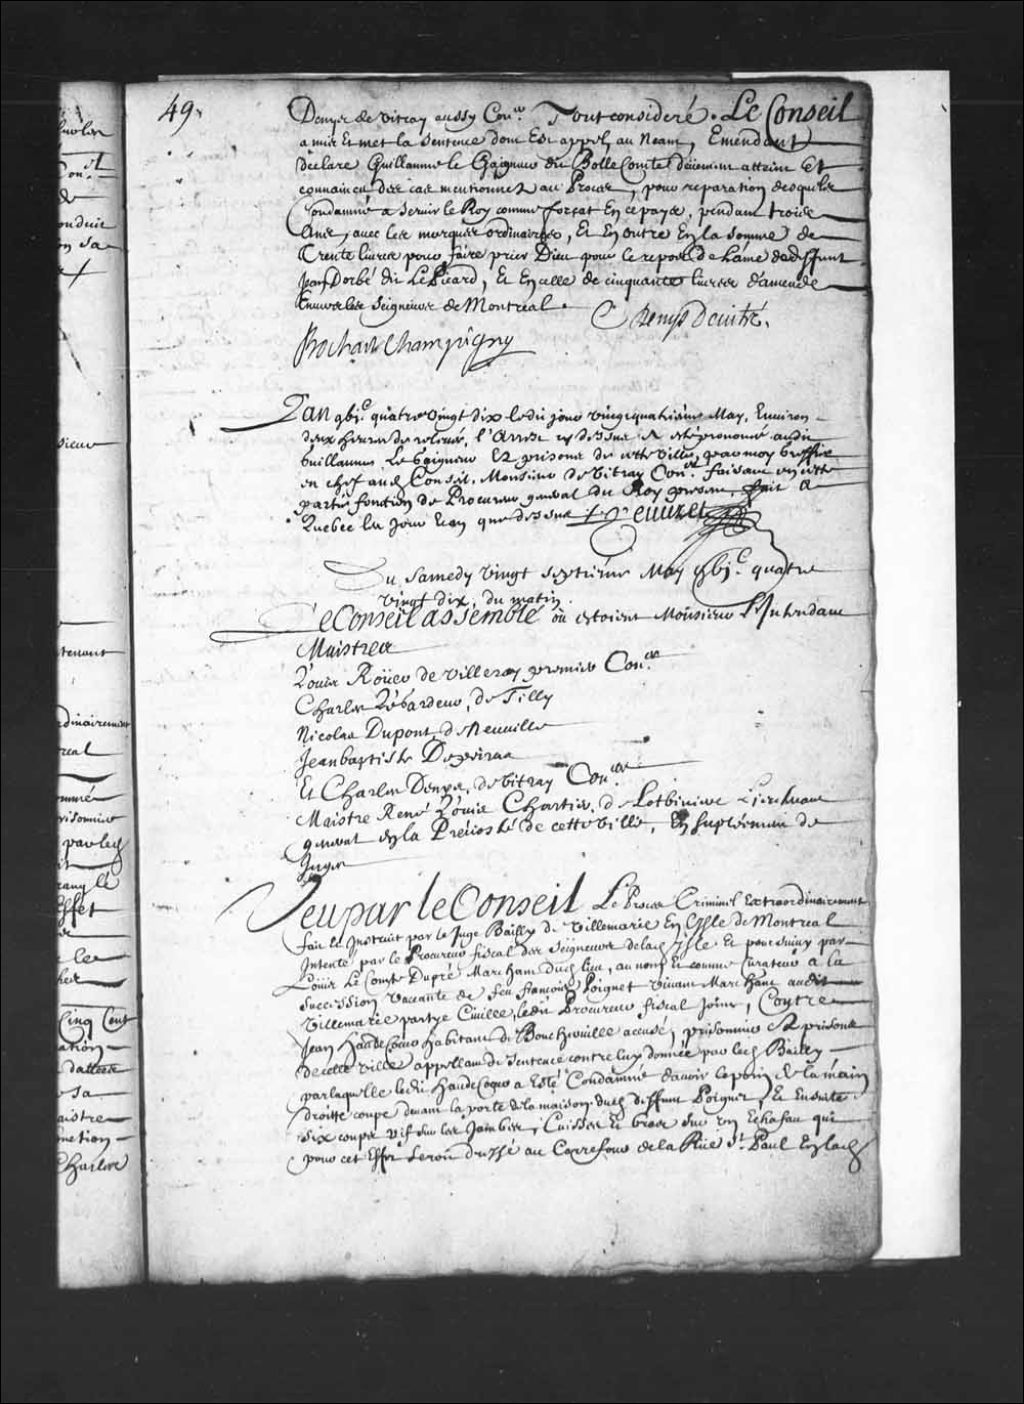 49
Denys de Vitray aussy Con.er Tout consideré. Le Conseil
a mis Et met la sentence dont Est appel, au Neant, Emendant
declare Guillaume le Gaigneur dit Belle Comte deüement atteint Et
convaincu des cas mentionnez au Proces, pour reparation desquels
Condamné a servir le Roy comme forsat En ce pays, pendant trois
Ans, avec les marques ordinaires, Et En outre En la somme de
Trente livres pour faire prier Dieu pour le repos de l'ame de deffunt
Jean Dorbé dit Le Picard, Et En celle de cinquante livres d'amende
Envers les Seigneurs de Montreal.
C Denys Devitré.
Bochart Champigny
L'an gbjc quatre vingt dix ledit jour vingt quatrieme May, Environ
deux heures de relevée, l'arrest cy dessus a esté prononcé audit
Guillaume Le Gaigneur Ez prisons de cette ville, par moy greffier
en chef aud Conseil, Monsieur de Vitray Con.er faisant en cette
partie fonction de Procureur general du Roy present, fait a
Quebec les jour Et an que dessus
Peuuret
Du Samedy vingt septieme May gbjc quatre
vingt dix, du matin.
Le Conseil assemblé où estoient Monsieur L'Intendant
Maistres
Louis Roüer de Villeray premier Con.er
Charles Legardeur de Tilly
Nicolas Dupont de Neuville
Jean baptiste Depeiras
Et Charles Denys de Vitray Con.ers
Maistre René Louis Chartier de Lotbiniere Lieutenant
general En la Prevosté de cette ville, En suplément de
Juges
Veu par le Conseil Le Proces Criminel Extraordinairement
fait Et Instruit par le Juge Bailly de Villemarie En L'Isle de Montreal
Intenté par le Procureur fiscal des Seigneurs de lad Isle Et poursuivy par
Louis Le Comte Dupré Marchant dud lieu, au nom Et comme Curateur a la
succession vaccante de feu françois Poignet vivant Marchant audit
Villemarie partye Civille, ledit Procureur fiscal joint, Contre
Jean Haudecoeur habitant de Boucherville accusé, prisonnier Ez prisons
de cette ville appellant de sentence contre luy donnée par led Bailly
par laquelle ledit Haudecoeur a Esté Condamné d'avoir le poin de la main
droitte coupé devant la porte de la maison dud deffunt Poignet, Et Ensuite
six coups vif sur les Jambes, Cuisses Et bras sur un Echafau qui
pour cet Effet seroit dressé au Carrefour de la Rüe St. Paul En lad